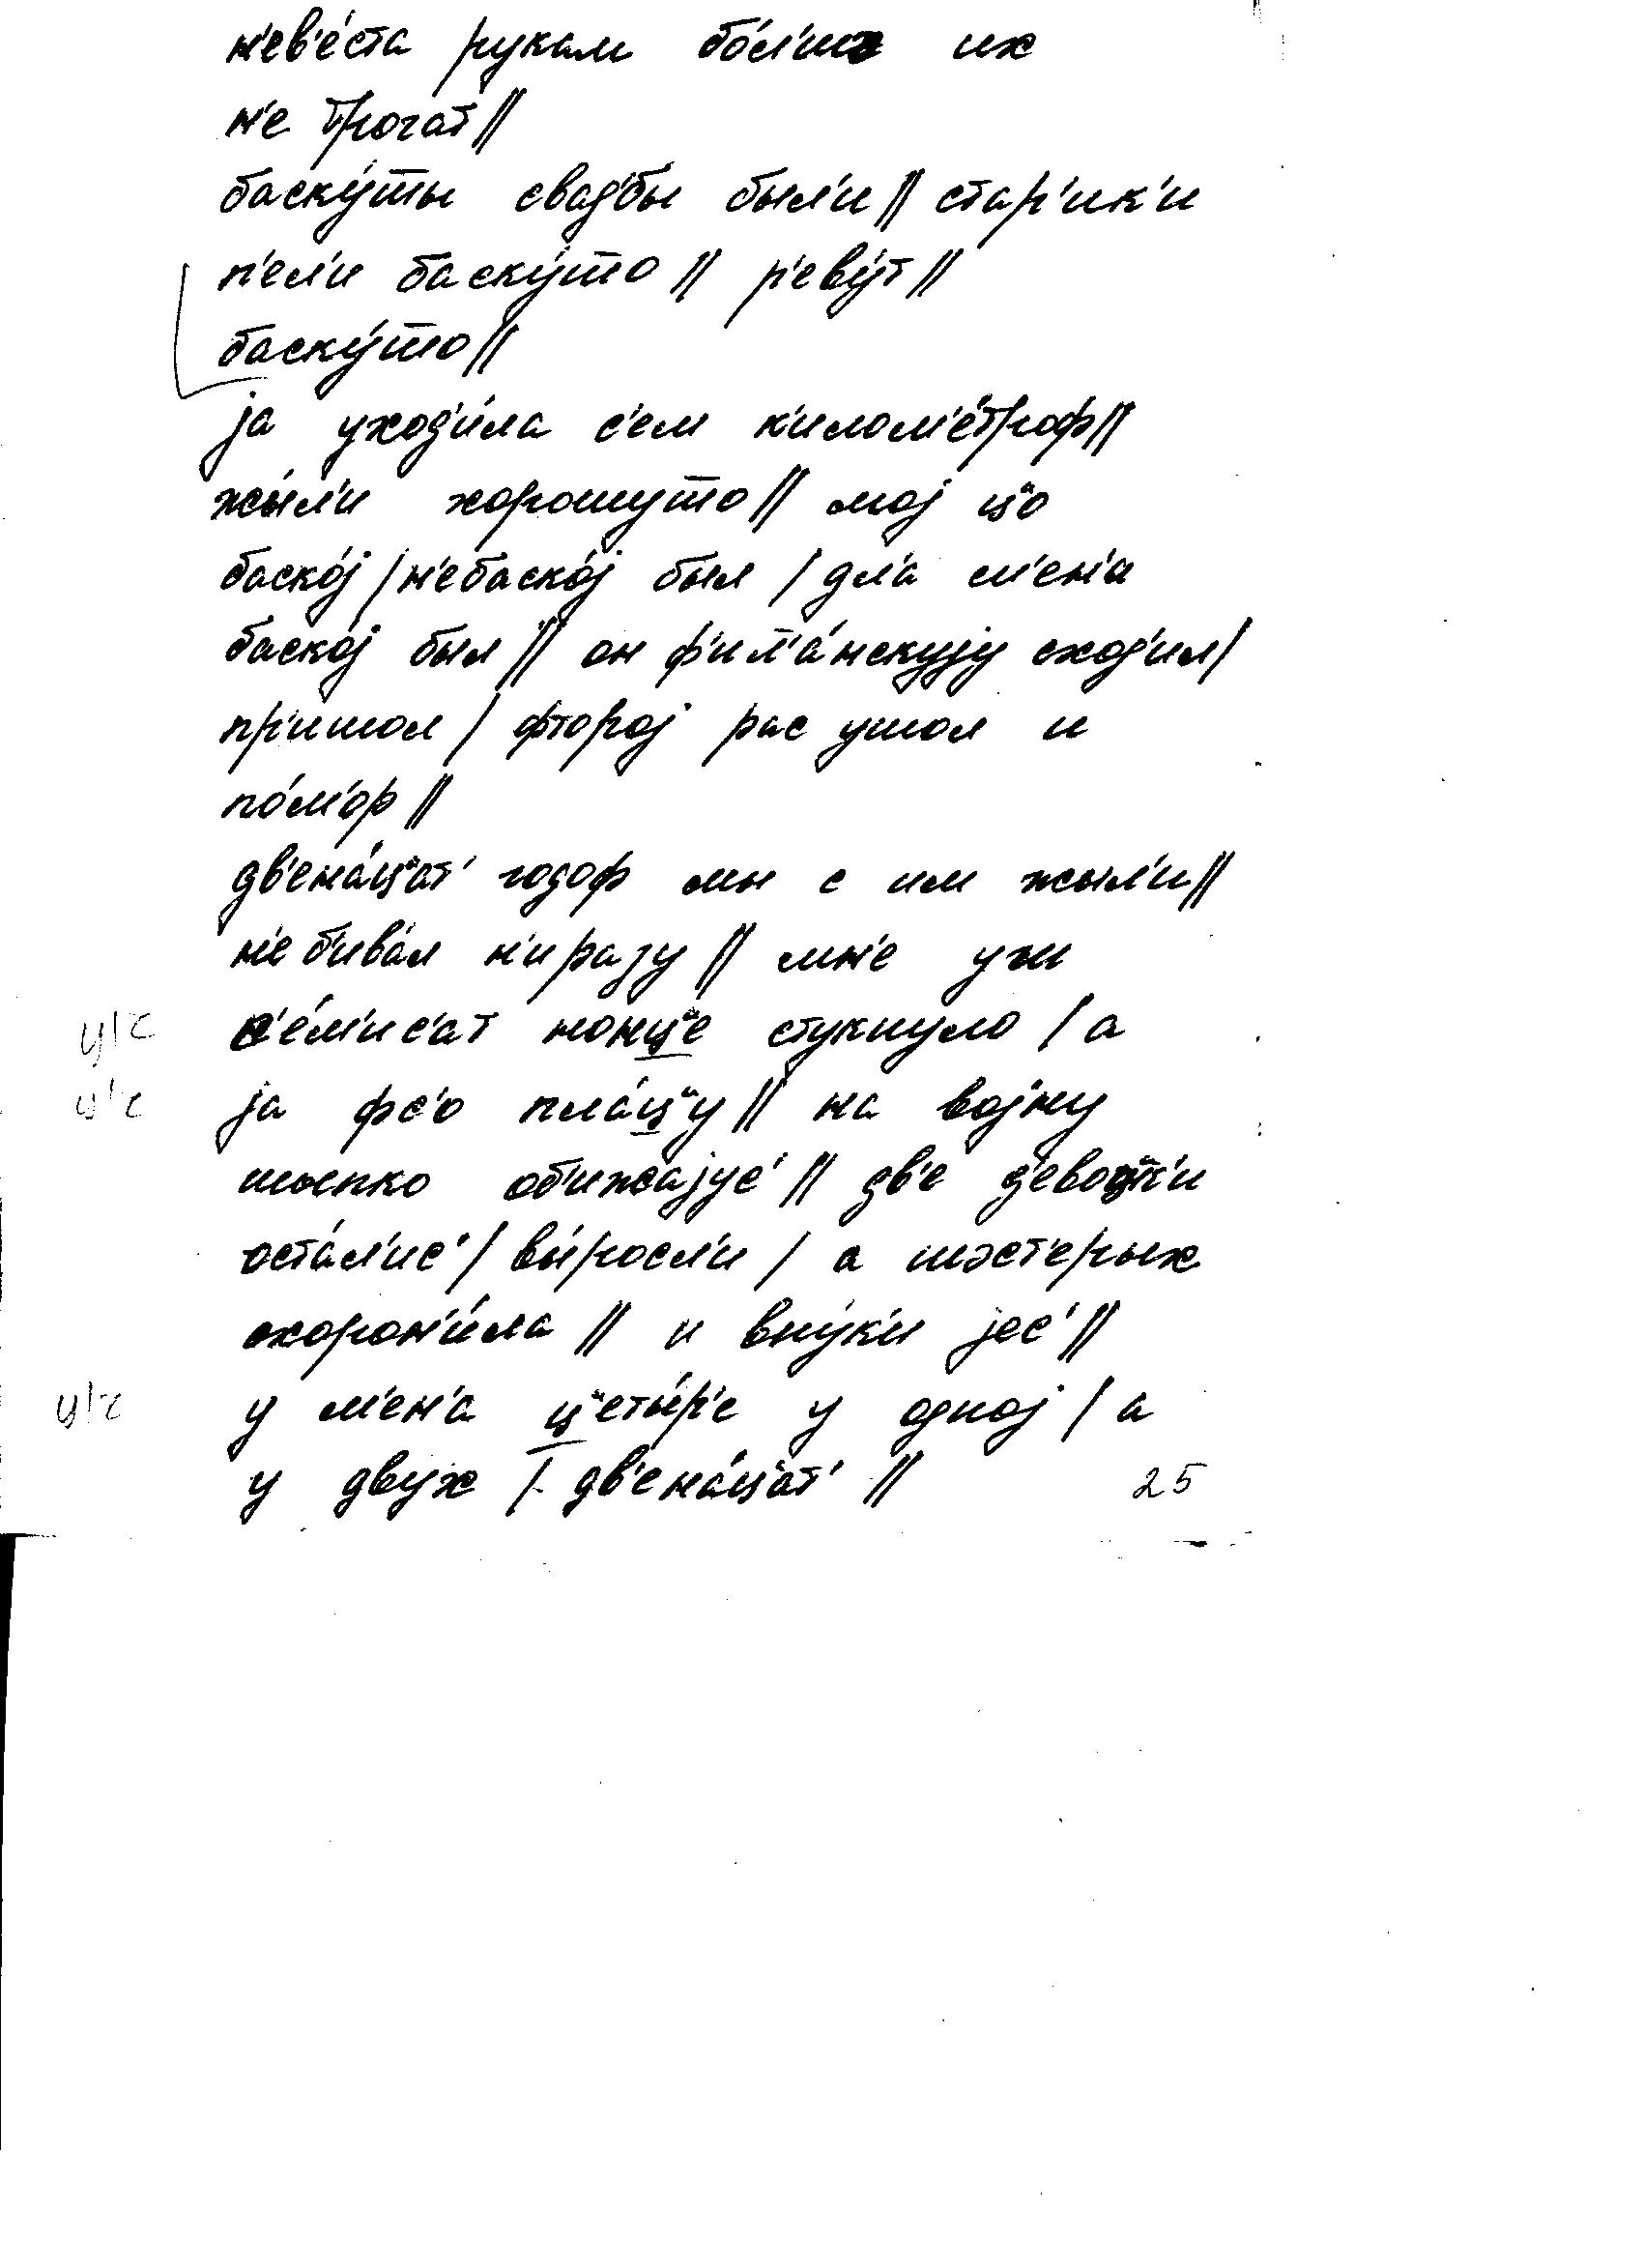 н'ев'е́ста рукам бо́л'шэ их
н'е трогат //
баску́шты свад'бы был'и // стар'ик'и
п'ел'и баску́што // р'еву́т //
баску́што //
ја уход'и́ла с'ем к'илом'е́троф //
жы́л'и хорошушто // мој ц"о
баско́ј / н'ебаско́ј был / дл'а м'ен'а
баско́ј был // он ф'ил'а́нскују сход'ил /
пр'ишол / фторој рас ушол и
по́м'ор //
дв'ена́ц"ат' годоф мы с им жыл'и //
н'е б'ива́л н'и разу // мн'е уж
ц/ч с'е́м'ис'ат нонц"е стукнуло / а
ц/ч ја фс'о пла́ц"у // на војну
шыпко об'ижајус' // дв'е д'евоц"к'и
оста́л'ис' / вы́росл'и / а шэст'ерых
схорон'и́ла // и внук'и јес' //
ц/ч у м'ен'а ц"еты́р'е у одној / а
у двух / дв'ена́ц"ат' // 25